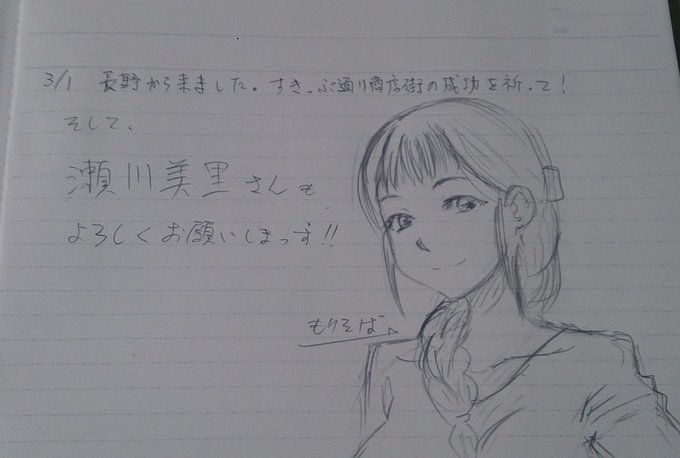 3/1 長野から来ました。すきっぷ通り商店街の成功を祈って!
そして、
瀬川美里さんも
よろしくお願いしまっす!!
もりそば